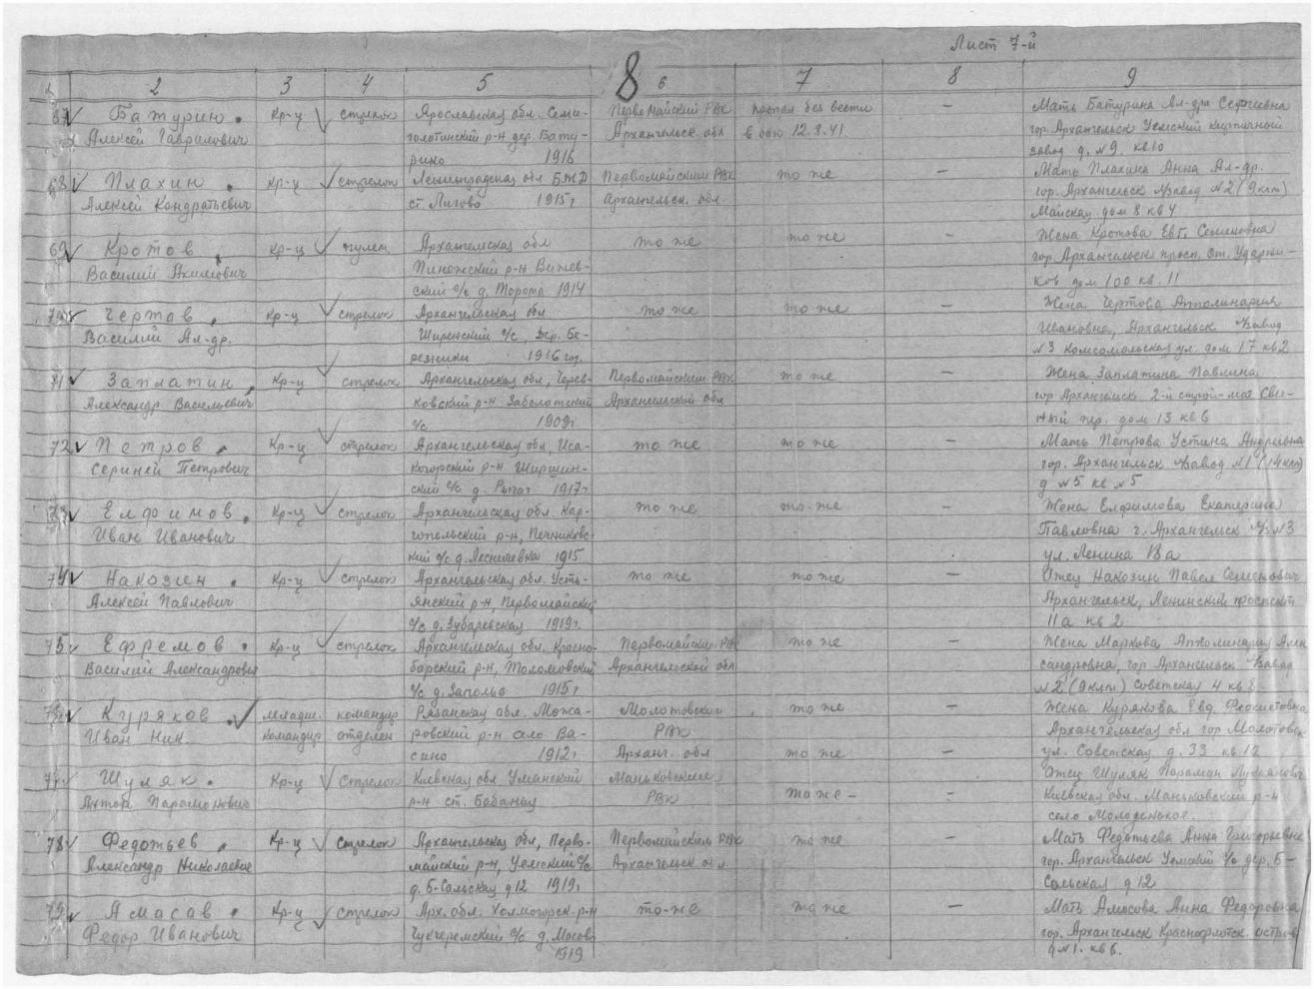 Лист 7-й
2 3 4 5 8 6 7 8 9
67 Батурин Кр-ц стрелок Ярославская обл. Семи- Первомайский РВК пропал без вести — Мать Батурина Ал-дра Сергеевна
Алексей Гаврилович Архангельск обл в бою 12.8.41 гор. Архангельск Уемский кирпичный
рино 1916 завод д. №9 кв10
68 Плахин Кр-ц стрелок Ленинградская обл БЖД Первомайский РВК то же — Мать Плахина Анна Ал-др.
Алексей Кондратьевич ст. Лигово 1915г Архангельск. обл гор. Архангельск №2 (9клт)
Майская дом 8 кв 4
69 Кротов Кр-ц Архангельская обл то же то же — Жена Кротова Евг. Семеновна
Василий Якимович Пинежский р-н гор Архангельск просп. от. Ударни-
ский с/с д. Торома 1914 ков дом 100 кв. 11
70 Чертов Кр-ц стрелок Архангельская обл то же то же — Жена Чертова Апполинария
Василий Ал-др. с/с, дер. Бе- Ивановна, Архангельск завод
резники 1916 год. №3 Комсомольская ул. дом 17 кв2
71 Заплатин Кр-ц стрелок Архангельская обл, Черев- Первомайский РВК то же — Жена Заплатина Павлина
Александр Васильевич ковский р-н Заболотский Архангельской обл гор Архангельск 2-й
с/с 1909г пер. дом 13 кв 6
72 Петров Кр-ц стрелок Архангельская обл, Иса- то же то же — Мать Петрова Устина Андреевна
Сергией Петрович когорский р-н Ширшин- гор. Архангельск завод №1 (14клт)
ский с/с д. 1917г д №5 кв №5
73 Елфимов Кр-ц стрелок Архангельская обл. Кар- то же то-же — Жена Елфимова Екатерина
Иван Иванович гопольский р-н, Печников- Павловна г. Архангельск №3
кий с/с д. 1915 ул. Ленина 18а
74 Накозин Кр-ц стрелок Архангельская обл. Усть- то же то же — Отец Накозин Павел Семенович
Алексей Павлович янский р-н, Первомайский Архангельск, Ленинский проспект
с/с д. Зубаревская 1919г 11а кв 2
75 Ефремов Кр-ц стрелок Архангельская обл. Красно- Первомайский РВК то же — Жена Маркова Апполинария Алек
Василий Александрович борский р-н, Толомовский Архангельской обл сандровна, гор Архангельск завод
с/с д. Заполье 1915г №2 (9клт) Советская 4 кв 8
76 Куряков младш. командир Рязанская обл. Можа- Молотовский то же — Жена Курякова Евд. Феоктистовна
Иван Ник. командир отделен ровский р-н село Ва- РВК Архангельская обл гор Молотовск
сино 1912г Арханг. обл то же — ул. Советская д. 33 кв. 12
77 Шуляк Кр-ц стрелок Киевская обл Уманский Маньковский Отец Шуляк Парамон Лукьянович
Антон Парамонович р-н ст. Бабанка РВК то же — Киевская обл. Маньковский р-н
село Молодецкое.
78 Федотьев Кр-ц стрелок Архангельская обл, Перво- Первомайский РВК то же — Мать Федотьева Анна Григорьевна
Александр Николаевич майский р-н, Уемский с/с Архангельск обл гор. Архангельск Уемский с/с дер. Б-
д. Б-Сальская д12 1919г Сальская д 12
79 Амасав Кр-ц стрелок Арх. обл. Холмогорск р-н то-же то же — Мать Амосова Анна Федоровна
Федор Иванович Чухчеремский с/с д. гор. Архангельск Краснофлотск. остров
1919 д №1. кв 6.